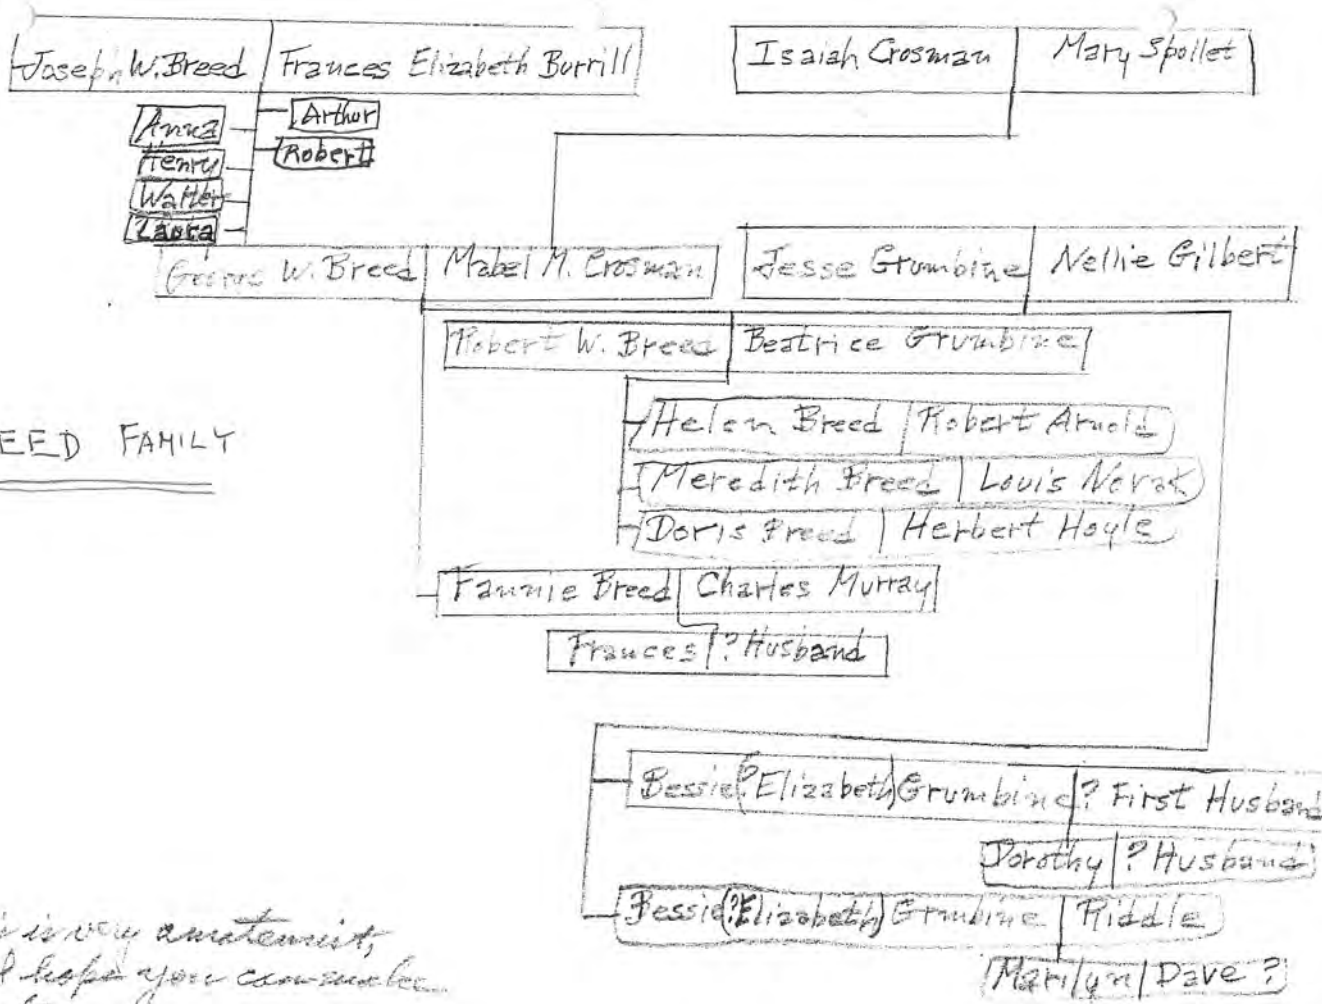 Joseph W. Breed | Frances Elizabeth Burrill
Isaiah Crosman | Mary Spollet
Anna
Arthur
Henry
Robert
Walter
Laura
George W. Breed | Mabel M. Crosman
Jesse Grumbine | Nellie Gilbert
Robert W. Breed | Beatrice Grumbine
Helen Breed | Robert Arnold
EED FAMILY
Meredith Breed | Louis Novak
Doris Breed | Herbert Hoyle
Fannie Breed | Charles Murray
Frances | ? Husband
Bessie (? Elizabeth) Grumbine | ? First Husband
Dorothy | ? Husband
Bessie (? Elizabeth) Grmbine | Riddle
Marilyn | Dave ?
is is very amateurist,
I hope you can make